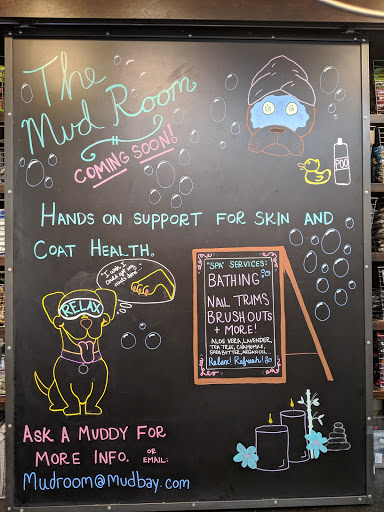 The
Mud Room
COMING SOON!
POO
HANDS ON SUPPORT FOR SKIN AND
COAT HEALTH.
I wish I
could get my
nails done!
RELAX
"SPA" SERVICES:
BATHING
NAIL TRIMS
BRUSH OUTS
+ MORE!
ALOE VERA, LAVENDER,
TEA TREE, CHAMOMILE,
SHEA BUTTER, ARGAN OIL
Relax! Refresh!
ASK A MUDDY FOR
MORE INFO. OR
EMAIL:
Mudroom@Mudbay.com